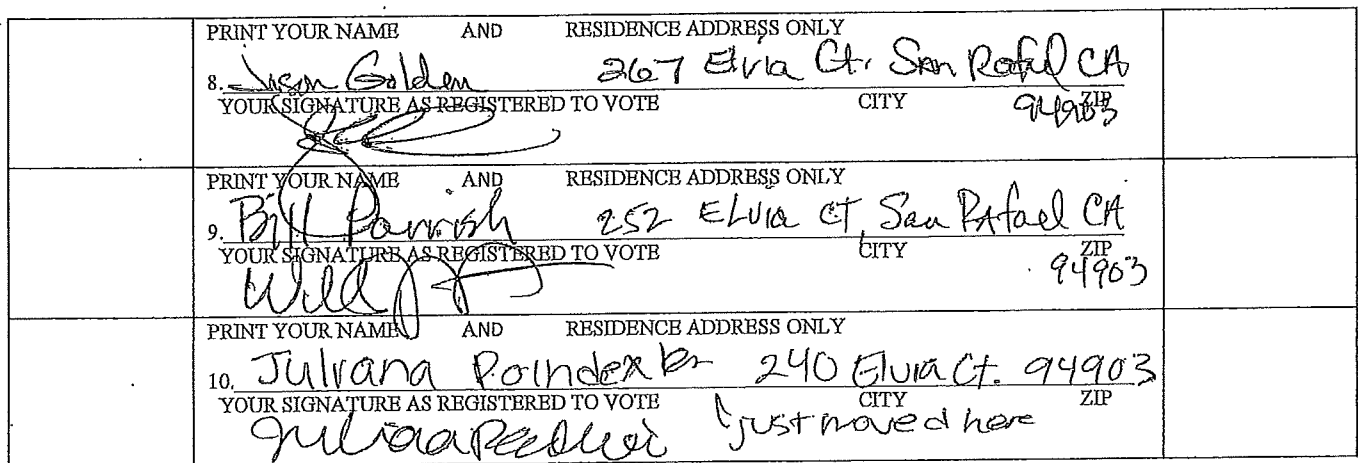 PRINT YOUR NAME AND RESIDENCE ADDRESS ONLY
8. Jason Golden 267 Elvia Ct. San Rafael CA
YOUR SIGNATURE AS REGISTERED TO VOTE CITY ZIP
94903
PRINT YOUR NAME AND RESIDENCE ADDRESS ONLY
9. Bill Parrish 252 ELVia CT, San RAfael CA
YOUR SIGNATURE AS REGISTERED TO VOTE CITY ZIP
94903
PRINT YOUR NAME AND RESIDENCE ADDRESS ONLY
10. Juliana Poindexter 240 Elvia Ct. 94903
YOUR SIGNATURE AS REGISTERED TO VOTE CITY ZIP
just moved here